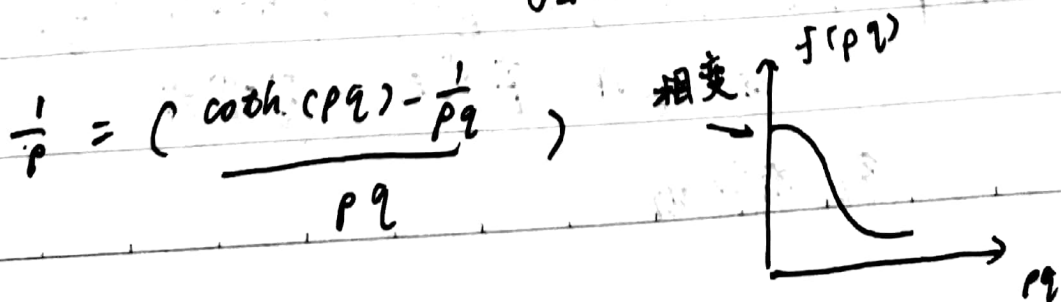 1/p = ( (coth (pq) - 1/pq) / pq )
相变
f(pq)
pq